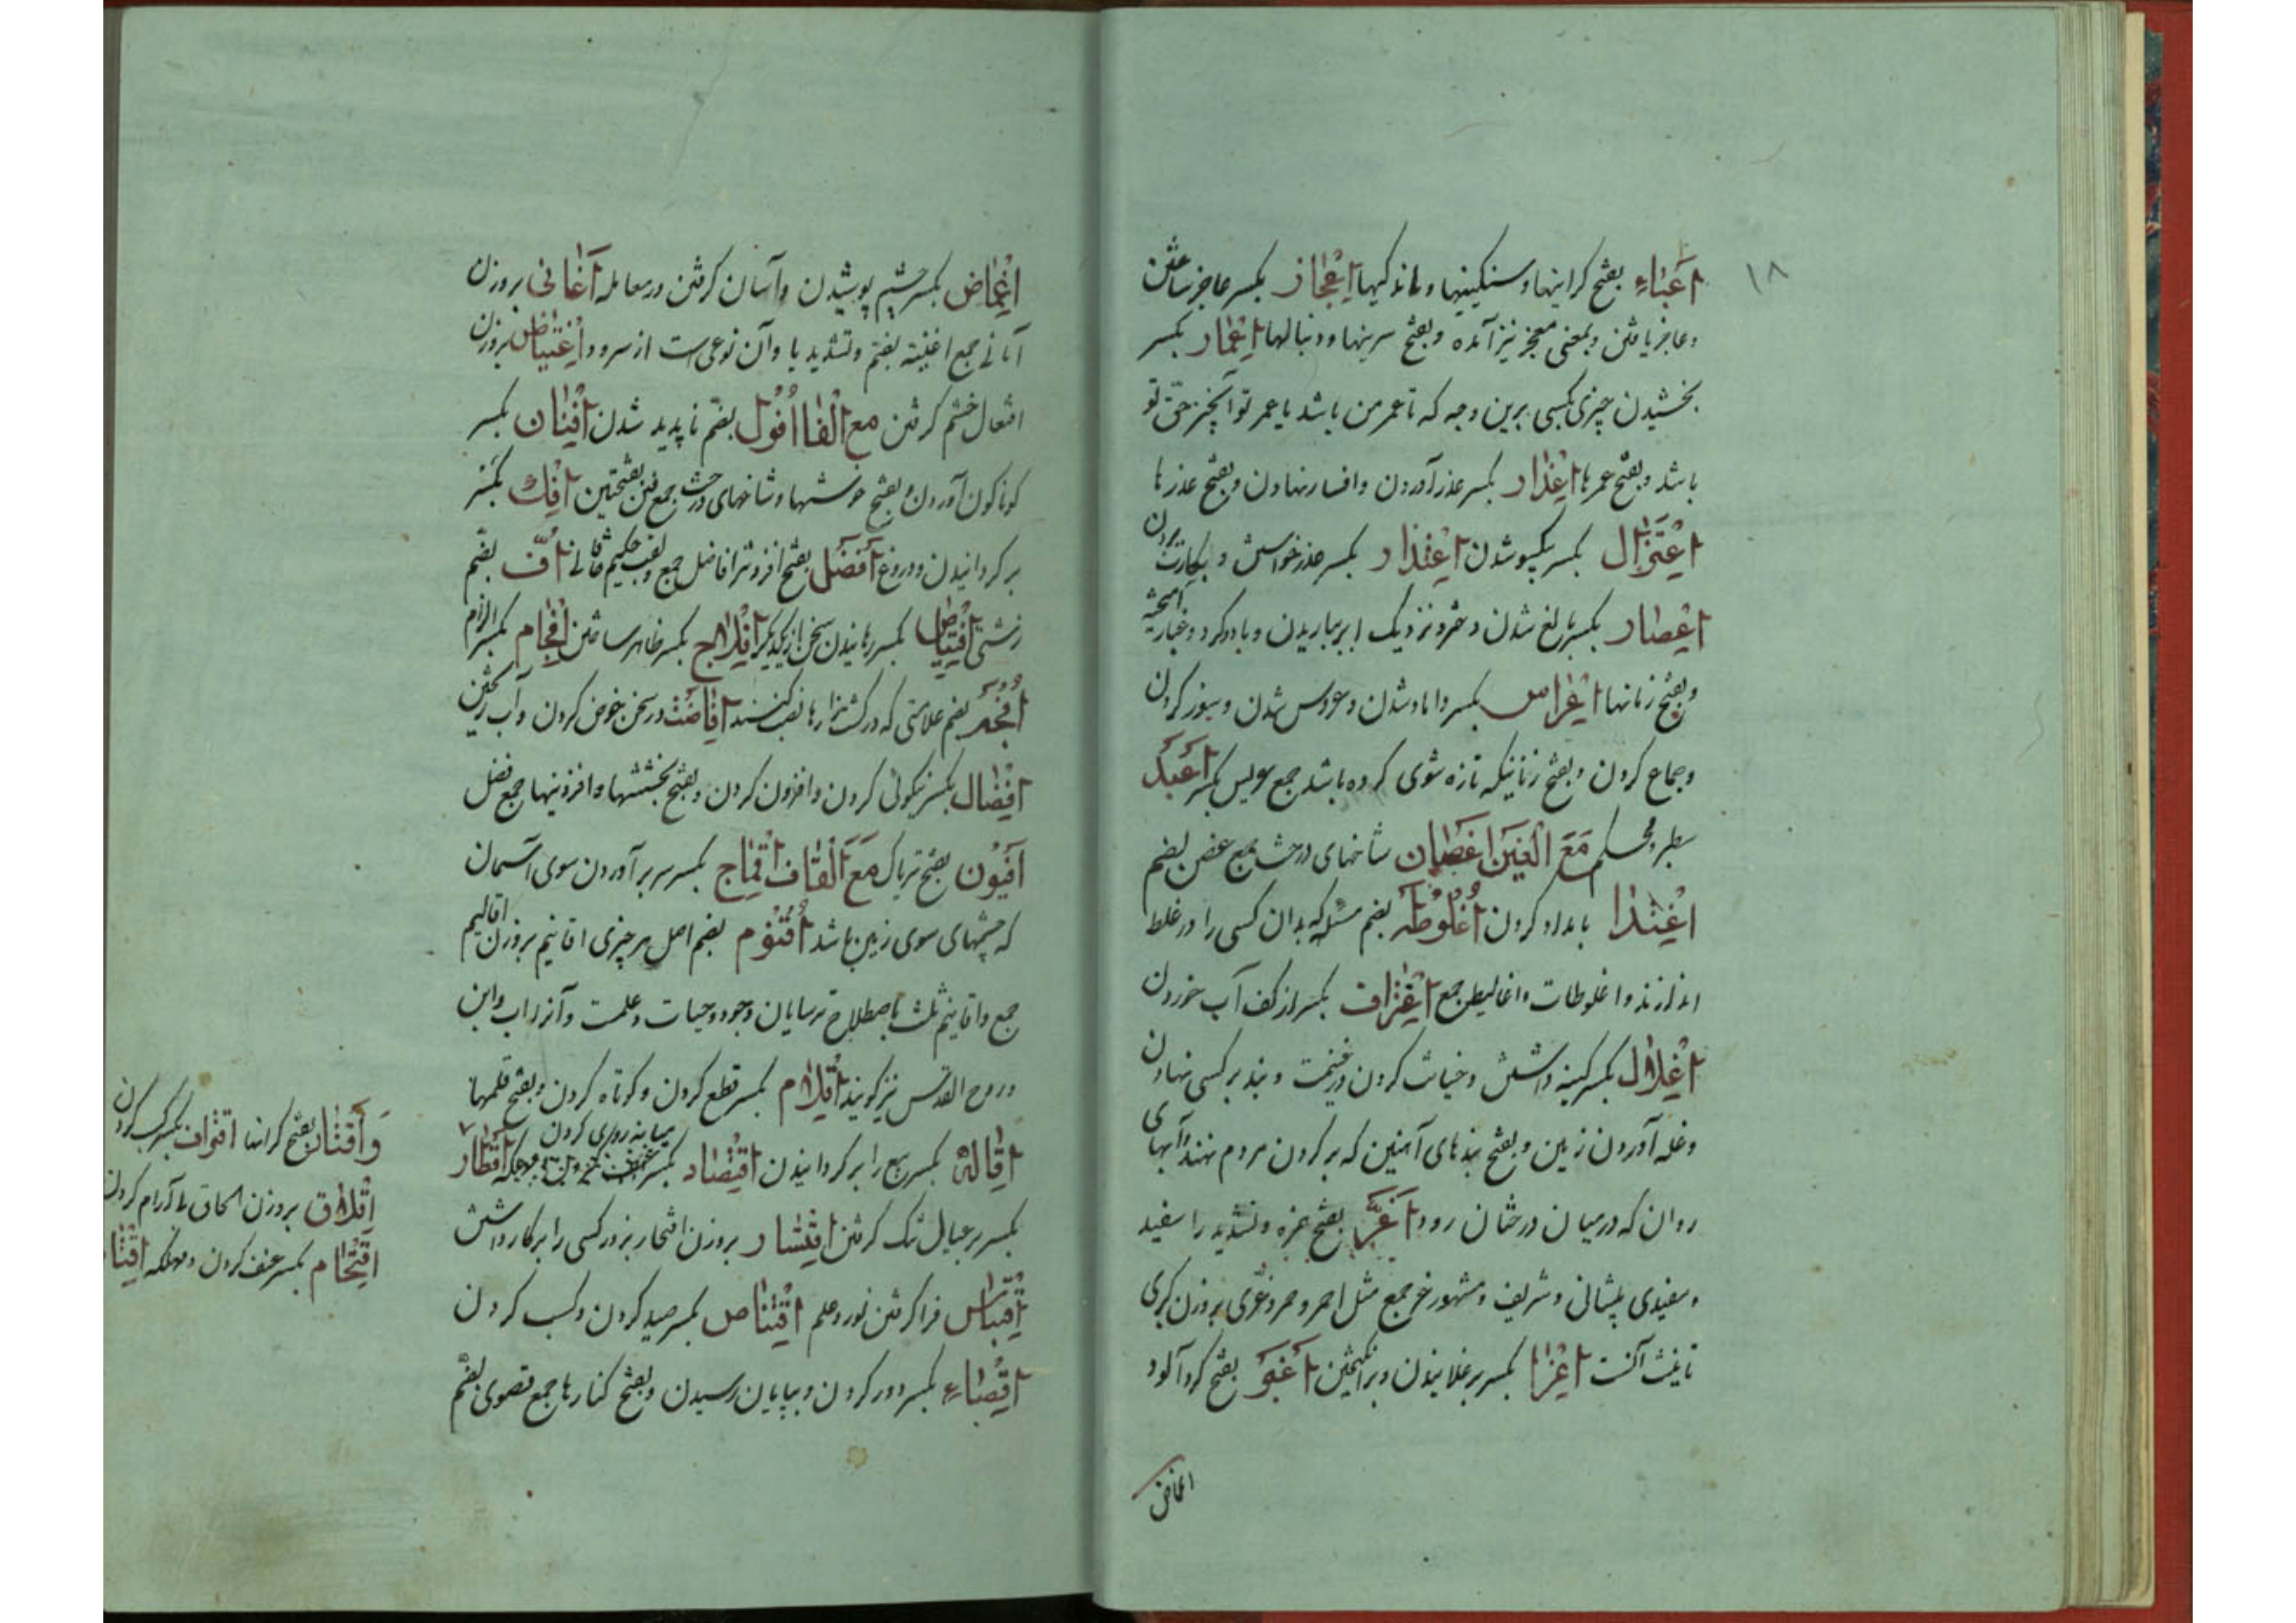 ۱۸
اَعْباءِ بفتح گرانیها و سنگینیها و ماندگیها اِعْجاز بکسر عاجز ساختن
و عاجز یافتن و بمعنی معجز نیز آمده و بفتح سرینها و دنبالها اِعْمار بکسر
بخشیدن چیزی بکسی برین وجه که تا عمر من باشد یا عمر تو این چیز حق تو
باشد و بفتح عمرها اِعْذار بکسر عذر آوردن و افسار نهادن و بفتح عذرها
اِعْتِزال بکسر یکسو شدن اِعْتِذار بکسر عذر خواستن و بکارت بردن
اِعْصار بکسر بالغ شدن دختر و نزدیک ابر بباریدن و باد گرد و غبار آمیخته
و بفتح زمانها اِعْراس بکسر داماد شدن و عروس شدن و سور کردن
و جماع کردن و بفتح زنانیکه تازه شوی کرده باشد جمع عروس بکسر اَعْبَد
سطبر و محکم مَعَ الْغَین اَغْصان شاخهای درخت جمع غصن بضم
اِغْتِذا بامداد کردن اُغْلوطَه بضم مسئله که بدان کسی را در غلط
اندازند و اغلوطات و اغالیط جمع اِغْتِراف بکسر از کف آب خوردن
اِغْلال بکسر کینه داشتن و خیانت کردن در غنیمت و بند بر کسی نهادن
و غله آوردن زمین و بفتح بندهای آهنین که بر گردن مردم نهند و آبهای
روان که در میان درختان رود اَغَرّ بفتح غره و تشدید را سفید
و سفیدی پیشانی و شریف و مشهور غر جمع مثل احمر و حمر و غری بر وزن کبری
تانیث آنست اِغْرا بکسر برغلانیدن و برانگیختن اَغْبَر بفتح گرد آلود
اغماض
اِغْماض بکسر چشم پوشیدن و آسان گرفتن در معامله اَغانی بر وزن
امانی جمع اغنیة بضم و تشدید یا و آن نوعی است از سرود اِغْتِیاض بر وزن
افتعال خشم گرفتن مع الفا اُفُول بضم ناپدید شدن اِفْتِنان بکسر
گوناگون آوردن و بفتح خوشها و شاخهای درخت جمع فنن بفتحتین اِفْک بکسر
برگردانیدن و دروغ اَفْضَل بفتح افزونتر افاضل جمع و لقب حکیم خاقانی اُفّ بضم
زشتی بکسر رهانیدن سخن از یکدیگر اِفْلاج بکسر ظاهر ساختن اِفْحام بکسر الزام
بضم علامتی که در کشتزارها نصب کنند اِفاضَت در سخن خوض کردن و آب ریختن
اِفْضال بکسر نیکوئی کردن و افزون کردن و بفتح بخششها و افزونیها جمع فضل
اَفْیُون بفتح تریاک مَعَ الْقاف اِقْماح بکسر سر بر آوردن سوی آسمان
که چشمهای سوی زمین باشد اُقْنُوم بضم اصل هر چیزی اقانیم بر وزن اقالیم
جمع و اقانیم ثلث باصطلاح ترسایان وجود و حیات و علمست و آنرا اب و ابن
و روح القدس نیز گویند اِقْلام بکسر قطع کردن و کوتاه کردن و بفتح قلمها
اِقالَة بکسر بیع را برگردانیدن اِقْتِصاد بکسر میانه روی کردن اِقْتار
بکسر بر عیال تنگ گرفتن اِقْتِسار بر وزن افتخار بزور کسی را بر کار داشتن
اِقْتِباس فرا گرفتن نور و علم اِقْتِناص بکسر صید کردن و کسب کردن
اِقْصاءِ بکسر دور کردن و بپایان رسیدن و بفتح کنارها جمع قصوی بضم
بفتح اقتراف بکسر کسب کردن
اِقْلاق بر وزن الحاق بی آرام کردن
اِقْتِحام بکسر عنف کردن و مهلکه